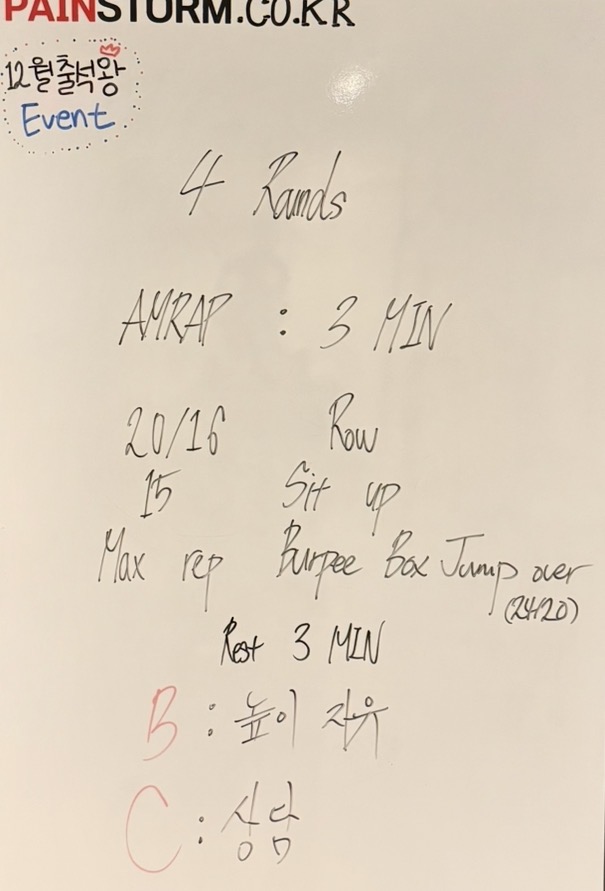 PAINSTORM.CO.KR
12월 출석왕
Event
4 Rounds
AMRAP : 3 MIN
20/16 Row
15 Sit up
Max rep Burpee Box Jump over
(24/20)
Rest 3 MIN
B : 높이 자유
C : 상담